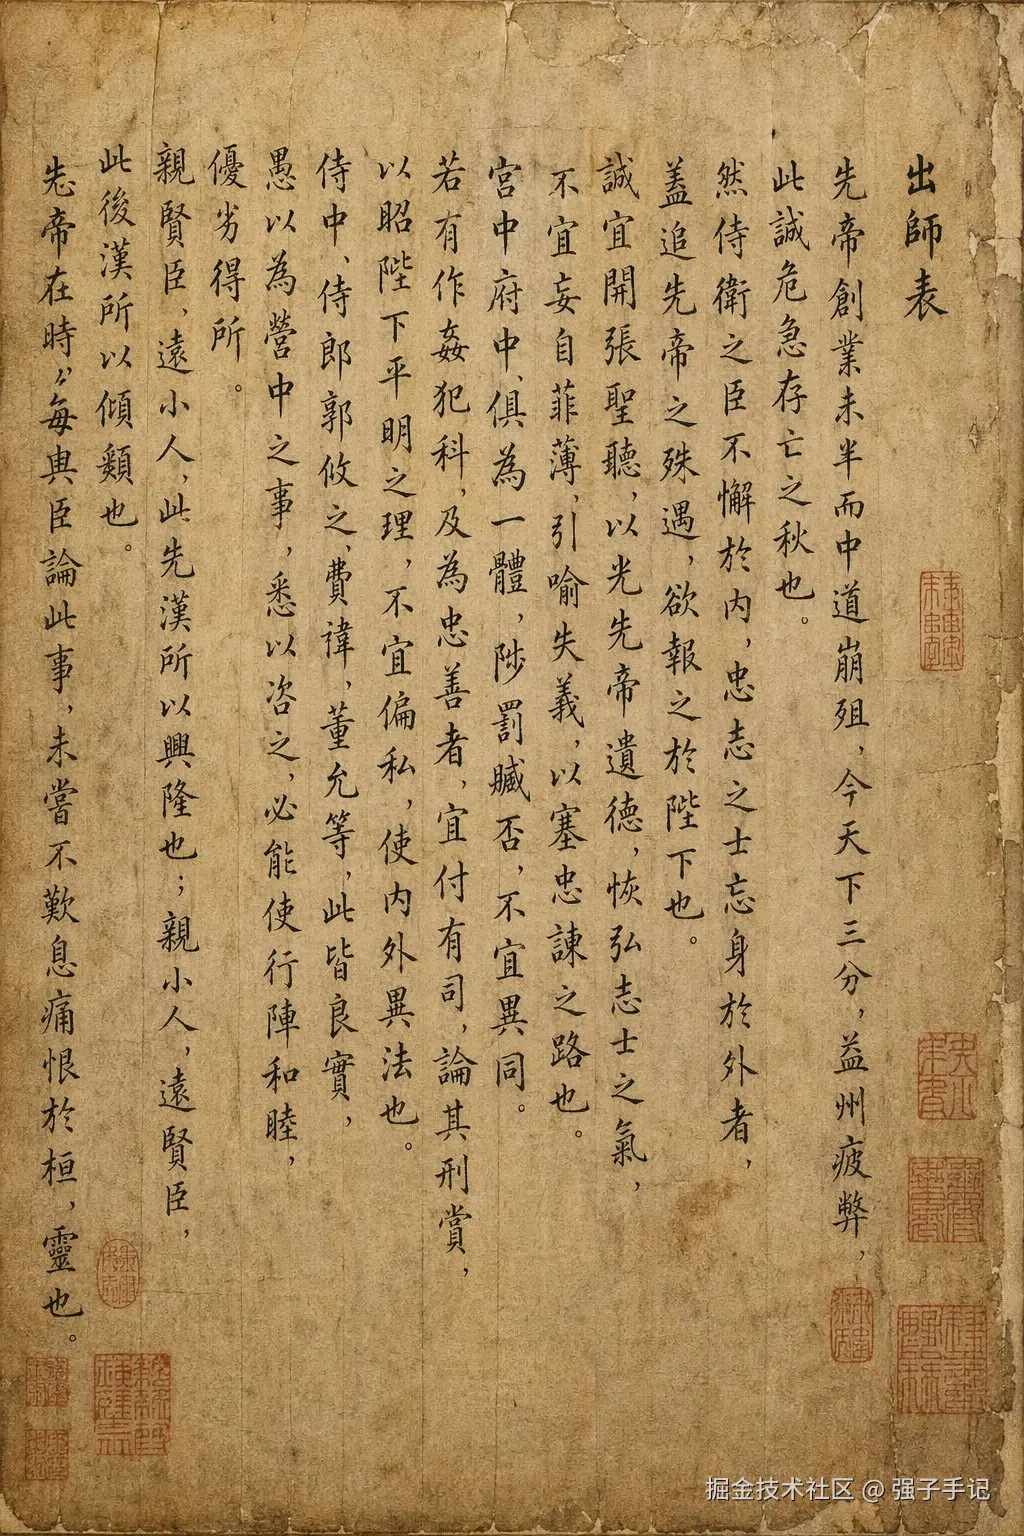 出師表
先帝創業未半而中道崩殂，今天下三分，益州疲弊，
此誠危急存亡之秋也。
然侍衛之臣不懈於内，忠志之士忘身於外者，
蓋追先帝之殊遇，欲報之於陛下也。
誠宜開張聖聽，以光先帝遺德，恢弘志士之氣，
不宜妄自菲薄，引喻失義，以塞忠諫之路也。
宮中府中、俱為一體，陟罰臧否，不宜異同。
若有作姦犯科，及為忠善者，宜付有司，論其刑賞，
以昭陛下平明之理，不宜偏私，使内外異法也。
侍中、侍郎郭攸之、費禕，董允等，此皆良實，
愚以為營中之事，悉以咨之，必能使行陣和睦，
優劣得所。
親賢臣，遠小人，此先漢所以興隆也；親小人，遠賢臣，
此後漢所以傾頹也。
先帝在時，每與臣論此事，未嘗不歎息痛恨於桓，靈也。
掘金技术社区 @ 强子手记